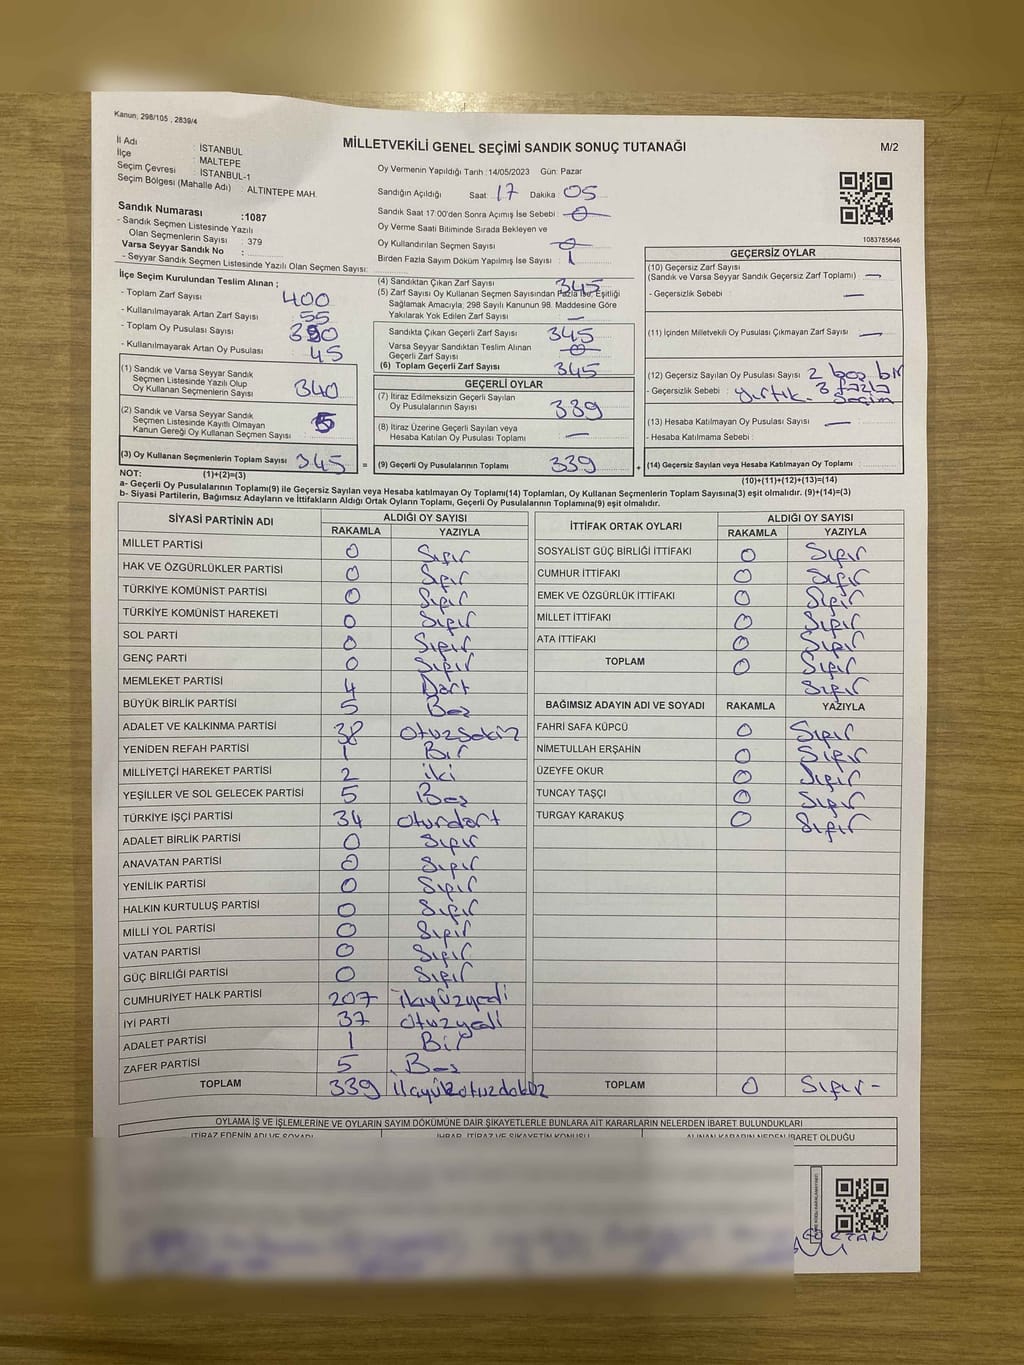 Kanun; 298/105 , 2839/4
MİLLETVEKİLİ GENEL SEÇİMİ SANDIK SONUÇ TUTANAĞI
M/2
İl Adı : İSTANBUL
İlçe : MALTEPE
Seçim Çevresi : İSTANBUL-1
Seçim Bölgesi (Mahalle Adı) : ALTINTEPE MAH.
Oy Vermenin Yapıldığı Tarih :14/05/2023 Gün: Pazar
Sandığın Açıldığı Saat 17 Dakika 05
Sandık Saat 17.00'den Sonra Açılmış İse Sebebi : 0
Oy Verme Saati Bitiminde Sırada Bekleyen ve
Oy Kullandırılan Seçmen Sayısı 0
Birden Fazla Sayım Döküm Yapılmış İse Sayısı : 1
1083785646
Sandık Numarası :1087
- Sandık Seçmen Listesinde Yazılı
Olan Seçmenlerin Sayısı : 379
Varsa Seyyar Sandık No :
- Seyyar Sandık Seçmen Listesinde Yazılı Olan Seçmen Sayısı:
İlçe Seçim Kurulundan Teslim Alınan ;
- Toplam Zarf Sayısı : 400
- Kullanılmayarak Artan Zarf Sayısı : 55
- Toplam Oy Pusulası Sayısı : 390
- Kullanılmayarak Artan Oy Pusulası : 45
(1) Sandık ve Varsa Seyyar Sandık
Seçmen Listesinde Yazılı Olup
Oy Kullanan Seçmenlerin Sayısı : 340
(2) Sandık ve Varsa Seyyar Sandık
Seçmen Listesinde Kayıtlı Olmayan
Kanun Gereği Oy Kullanan Seçmen Sayısı : 5
(3) Oy Kullanan Seçmenlerin Toplam Sayısı : 345 =
(4) Sandıktan Çıkan Zarf Sayısı : 345
(5) Zarf Sayısı Oy Kullanan Seçmen Sayısından Fazla İse, Eşitliği
Sağlamak Amacıyla, 298 Sayılı Kanunun 98. Maddesine Göre
Yakılarak Yok Edilen Zarf Sayısı : —
Sandıkta Çıkan Geçerli Zarf Sayısı : 345
Varsa Seyyar Sandıktan Teslim Alınan
Geçerli Zarf Sayısı : 0
(6) Toplam Geçerli Zarf Sayısı : 345
GEÇERLİ OYLAR
(7) İtiraz Edilmeksizin Geçerli Sayılan
Oy Pusulalarının Sayısı : 339
(8) İtiraz Üzerine Geçerli Sayılan veya
Hesaba Katılan Oy Pusulası Toplamı : —
(9) Geçerli Oy Pusulalarının Toplamı : 339 +
GEÇERSİZ OYLAR
(10) Geçersiz Zarf Sayısı
(Sandık ve Varsa Seyyar Sandık Geçersiz Zarf Toplamı) : —
- Geçersizlik Sebebi : —
(11) İçinden Milletvekili Oy Pusulası Çıkmayan Zarf Sayısı : —
(12) Geçersiz Sayılan Oy Pusulası Sayısı : 2 boş bir
- Geçersizlik Sebebi : yırtık. 3 fazla
seçim
(13) Hesaba Katılmayan Oy Pusulası Sayısı : —
- Hesaba Katılmama Sebebi :
(14) Geçersiz Sayılan veya Hesaba Katılmayan Oy Toplamı :
NOT: (1)+(2)=(3)
(10)+(11)+(12)+(13)=(14)
a- Geçerli Oy Pusulalarının Toplamı(9) ile Geçersiz Sayılan veya Hesaba katılmayan Oy Toplamı(14) Toplamları, Oy Kullanan Seçmenlerin Toplam Sayısına(3) eşit olmalıdır. (9)+(14)=(3)
b- Siyasi Partilerin, Bağımsız Adayların ve İttifakların Aldığı Ortak Oyların Toplamı, Geçerli Oy Pusulalarının Toplamına(9) eşit olmalıdır.
SİYASİ PARTİNİN ADI ALDIĞI OY SAYISI
RAKAMLA YAZIYLA
MİLLET PARTİSİ 0 Sıfır
HAK VE ÖZGÜRLÜKLER PARTİSİ 0 Sıfır
TÜRKİYE KOMÜNİST PARTİSİ 0 Sıfır
TÜRKİYE KOMÜNİST HAREKETİ 0 Sıfır
SOL PARTİ 0 Sıfır
GENÇ PARTİ 0 Sıfır
MEMLEKET PARTİSİ 4 Dört
BÜYÜK BİRLİK PARTİSİ 5 Beş
ADALET VE KALKINMA PARTİSİ 38 Otuzsekiz
YENİDEN REFAH PARTİSİ 1 Bir
MİLLİYETÇİ HAREKET PARTİSİ 2 İki
YEŞİLLER VE SOL GELECEK PARTİSİ 5 Beş
TÜRKİYE İŞÇİ PARTİSİ 34 Oturdört
ADALET BİRLİK PARTİSİ 0 Sıfır
ANAVATAN PARTİSİ 0 Sıfır
YENİLİK PARTİSİ 0 Sıfır
HALKIN KURTULUŞ PARTİSİ 0 Sıfır
MİLLİ YOL PARTİSİ 0 Sıfır
VATAN PARTİSİ 0 Sıfır
GÜÇ BİRLİĞİ PARTİSİ 0 Sıfır
CUMHURİYET HALK PARTİSİ 207 İkiyüzyedi
İYİ PARTİ 37 Otuzyedi
ADALET PARTİSİ 1 Bir
ZAFER PARTİSİ 5 Beş
TOPLAM 339
İTTİFAK ORTAK OYLARI ALDIĞI OY SAYISI
RAKAMLA YAZIYLA
SOSYALİST GÜÇ BİRLİĞİ İTTİFAKI 0 Sıfır
CUMHUR İTTİFAKI 0 Sıfır
EMEK VE ÖZGÜRLÜK İTTİFAKI 0 Sıfır
MİLLET İTTİFAKI 0 Sıfır
ATA İTTİFAKI 0 Sıfır
TOPLAM 0 Sıfır
Sıfır
BAĞIMSIZ ADAYIN ADI VE SOYADI RAKAMLA YAZIYLA
FAHRİ SAFA KÜPCÜ 0 Sıfır
NİMETULLAH ERŞAHİN 0 Sıfır
ÜZEYFE OKUR 0 Sıfır
TUNCAY TAŞÇI 0 Sıfır
TURGAY KARAKUŞ 0 Sıfır
TOPLAM 0 Sıfır-
OYLAMA İŞ VE İŞLEMLERİNE VE OYLARIN SAYIM DÖKÜMÜNE DAİR ŞİKAYETLERLE BUNLARA AİT KARARLARIN NELERDEN İBARET BULUNDUKLARI
İTİRAZ EDENİN ADI VE SOYADI İHBAR, İTİRAZ VE ŞİKAYETİN KONUSU ALINAN KARARIN NEDEN İBARET OLDUĞU